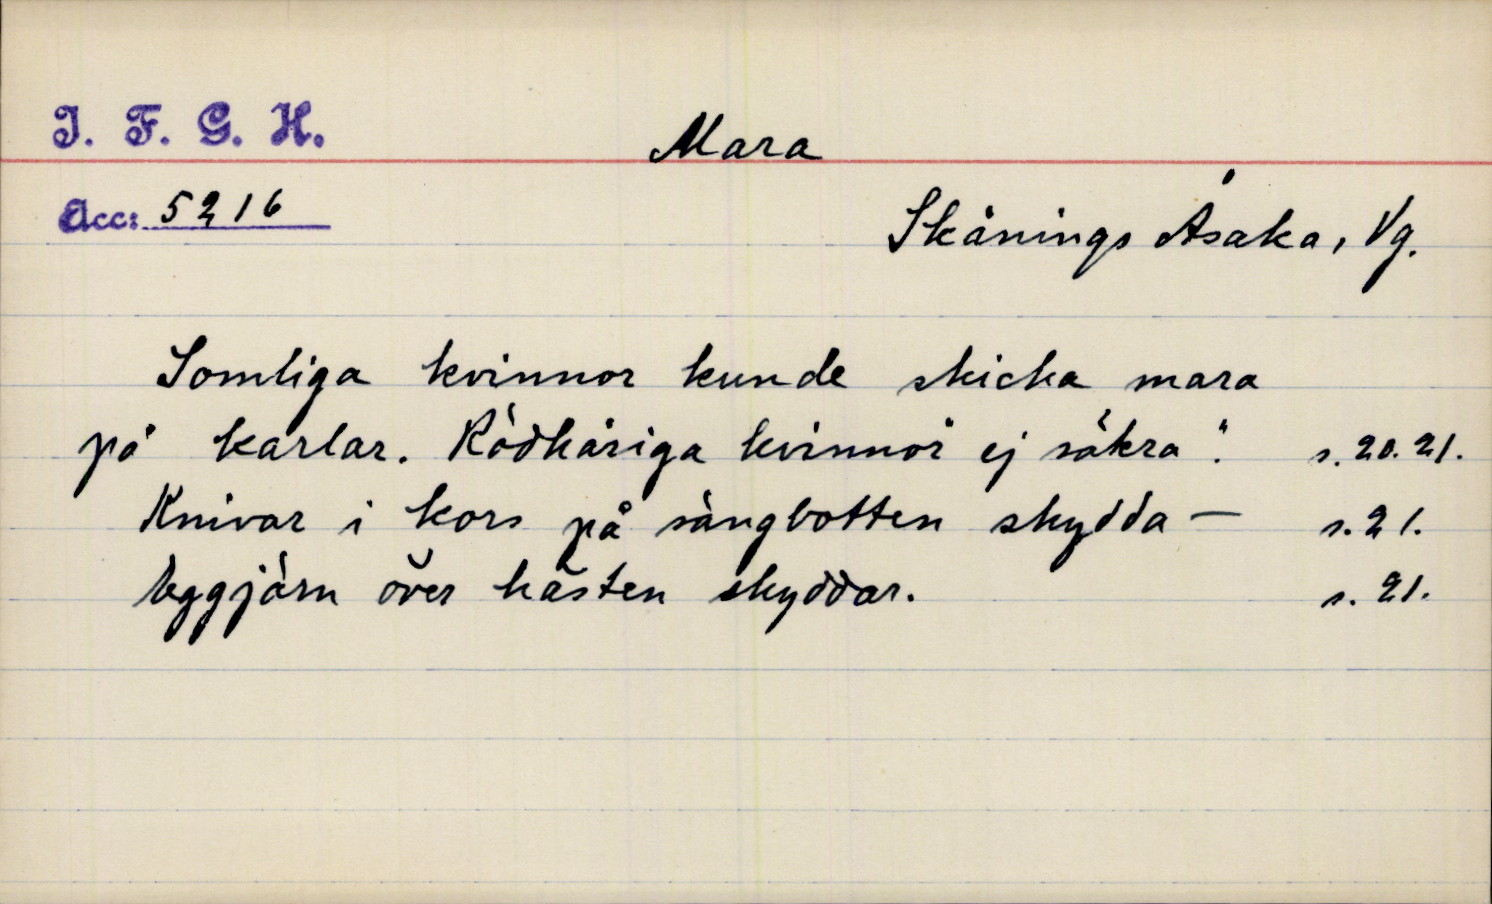 I. F. G. H.
Mara
Acc: 5216
Skånings Åsaka, Vg.
Somliga kvinnor kunde skicka mara
på karlar. Rödhåriga kvinnor "ej säkra". s. 20. 21.
Knivar i kors på sängbotten skydda — s. 21.
Eggjärn över hästen skyddar. s. 21.